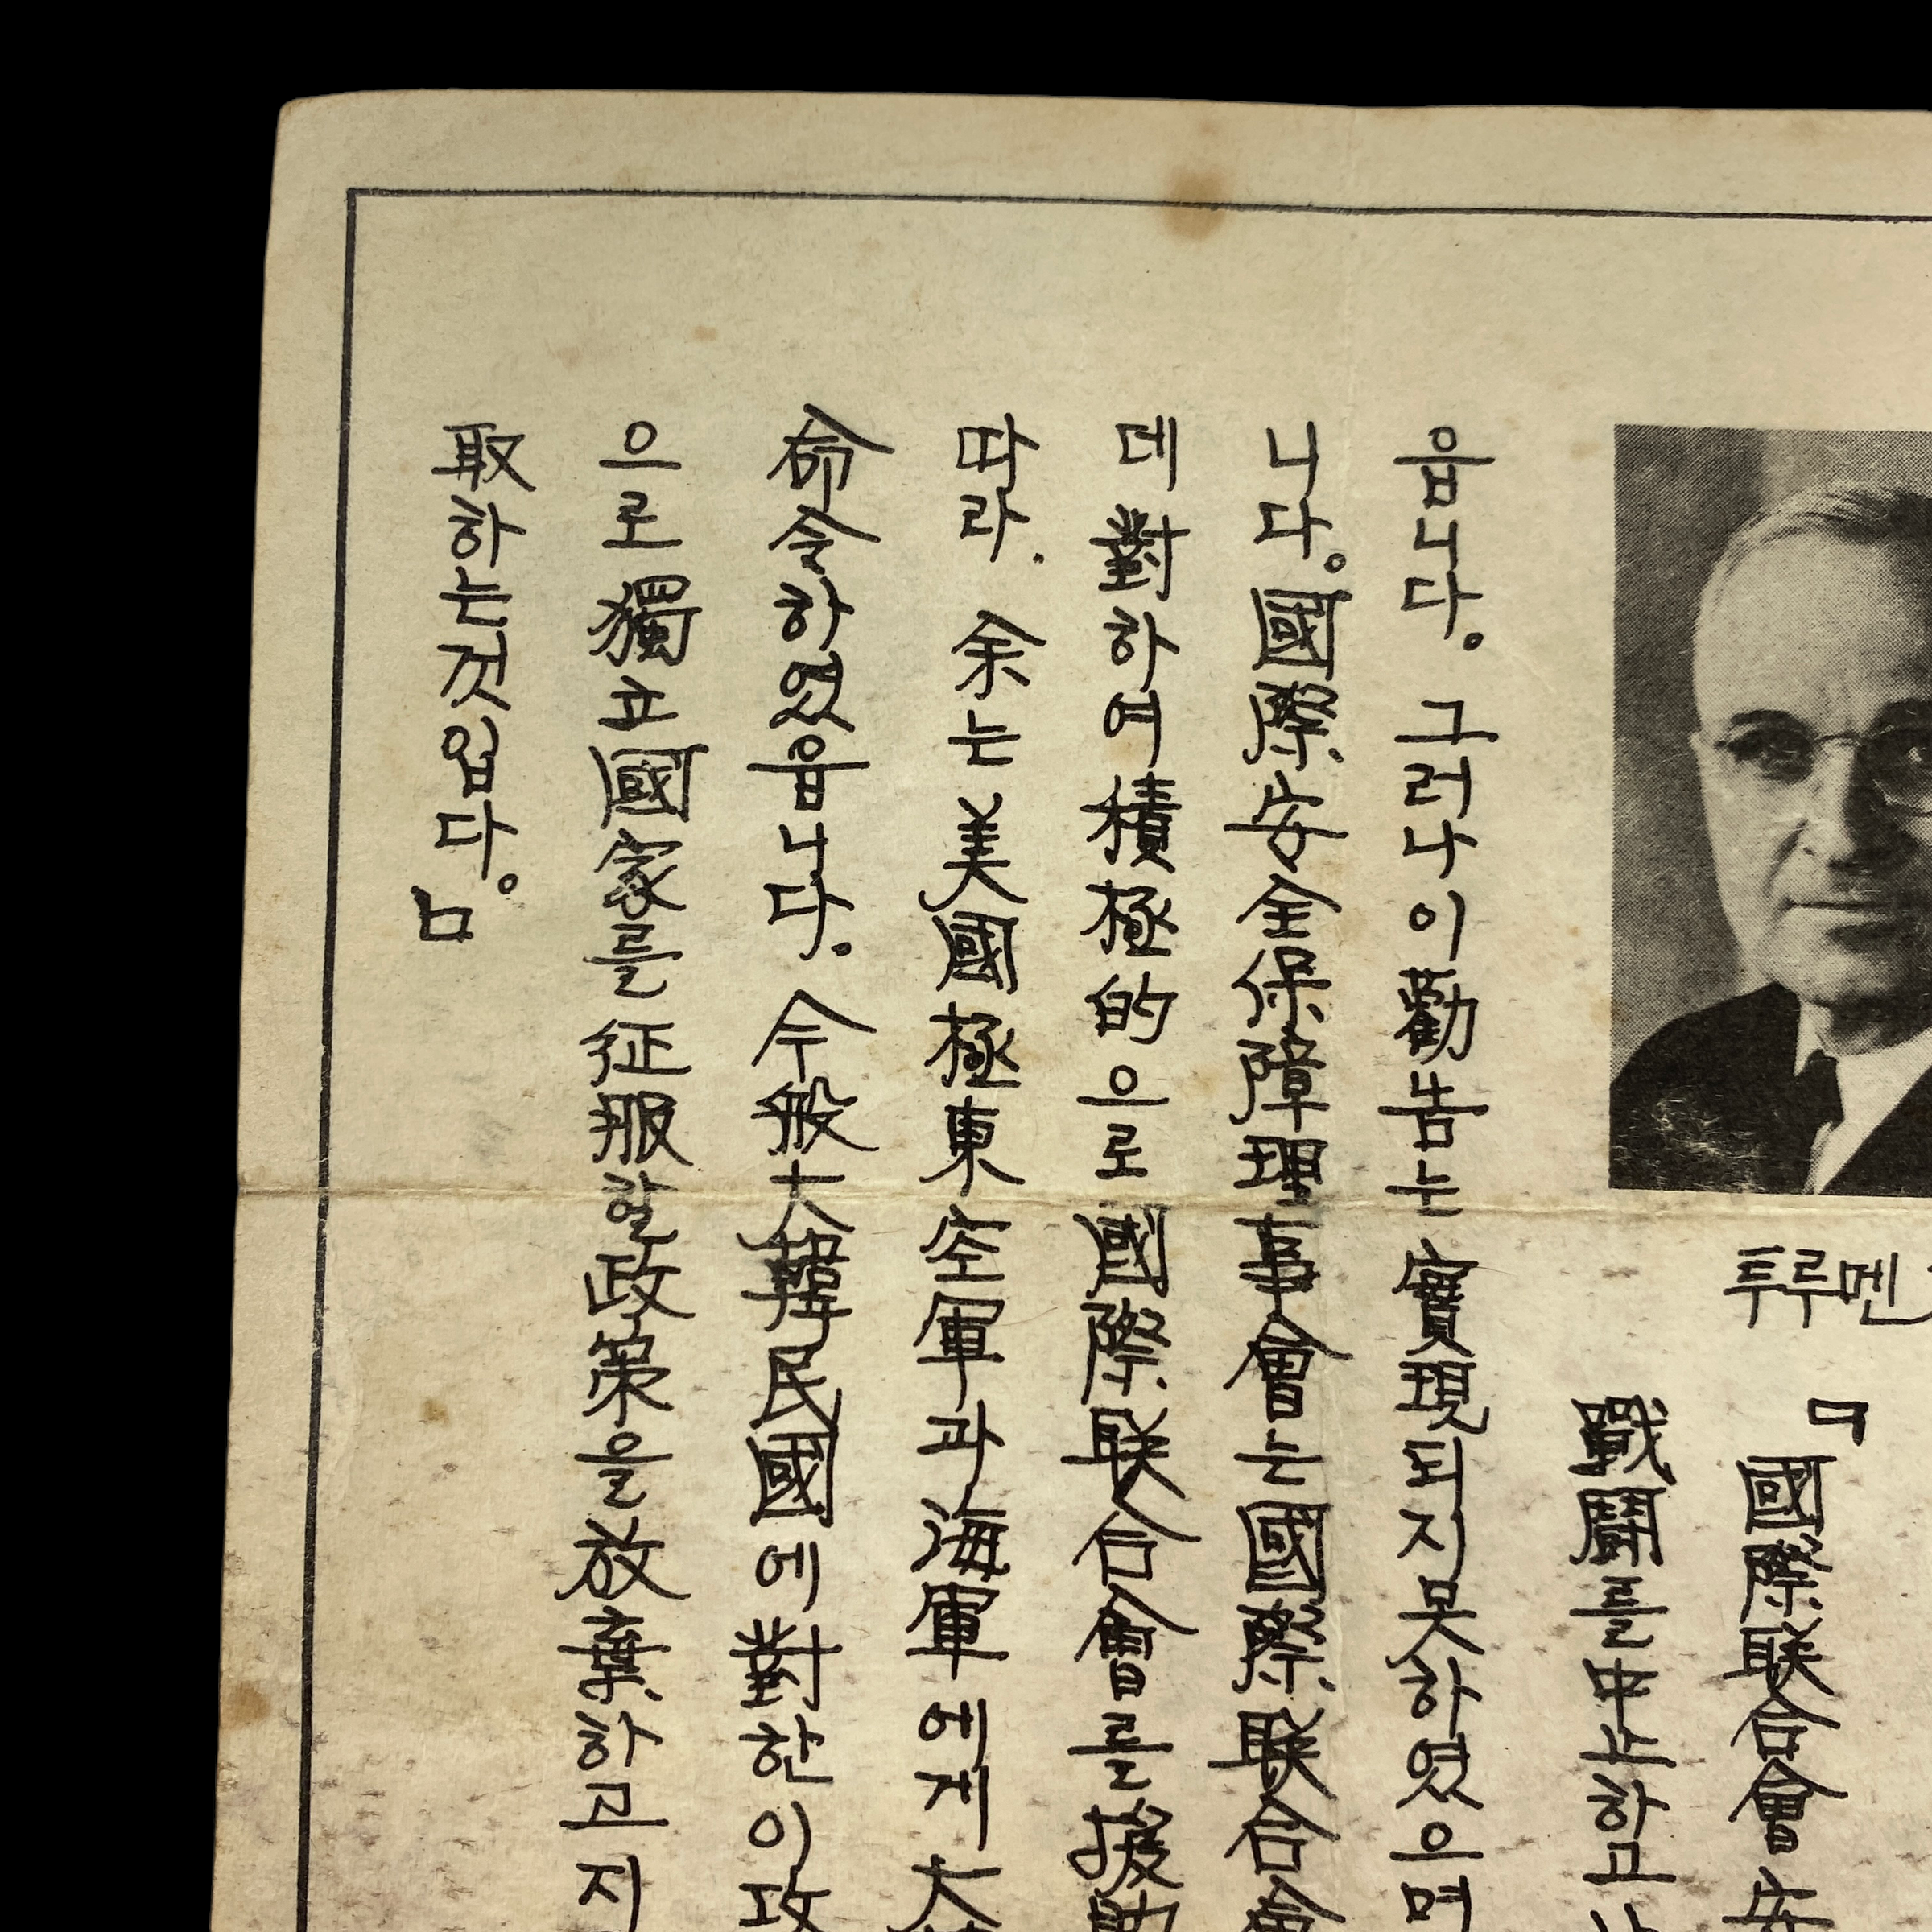 투루멘
『國際联合會安
戰鬪를中止하고
읍니다。그러나이勸告는 實現되지못하였으며
니다。國際安全保障理事會는國際联合會
데 對하여 積極的으로國際联合會를援助
따라. 余는 美國極東空軍과海軍에게大
命令하였읍니다。今般大韓民國에對한이攻
으로獨立國家를征服할政策을放棄하고지
取하는것입다。』